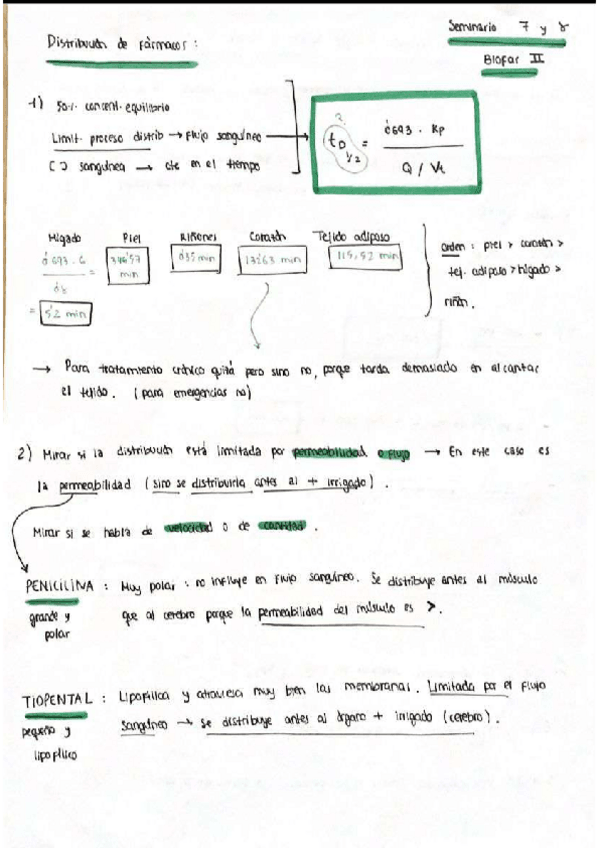 Seminario 7 y 8
Biofar II
Distribución de Fármacos :
1) 50% concent. equilibrio
Limit. proceso distrib → Flujo sanguíneo
[ ] sanguínea → cte en el tiempo
t D 1/2 = 0'693 · Kp / Q / Vt
Hígado Piel Riñones Corazón Tejido adiposo
0'693 · 6 =
min
min
13'63 min
115,52 min
= 5'2 min
orden : piel > corazón >
tej. adiposo > hígado >
riñón.
→ Para tratamiento crónico quizá pero sino no, porque tarda demasiado en alcanzar
el tejido. (para emergencias no)
2) Mirar si la distribución está limitada por permeabilidad o flujo → En este caso es
la permeabilidad (sino se distribuiría antes al + irrigado).
Mirar si se habla de velocidad o de cantidad.
PENICILINA : Muy polar : no influye en flujo sanguíneo. Se distribuye antes al músculo
grande y que al cerebro porque la permeabilidad del músculo es >.
polar
TIOPENTAL : Lipofílica y atraviesa muy bien las membranas. Limitada por el flujo
pequeño y sanguíneo → se distribuye antes al órgano + irrigado (cerebro).
lipofílico